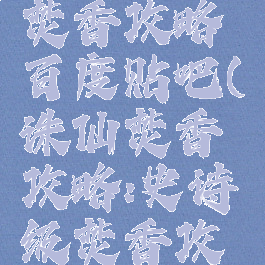 焚香攻略
百度贴吧(
诛仙焚香
攻略:史诗
级焚香攻